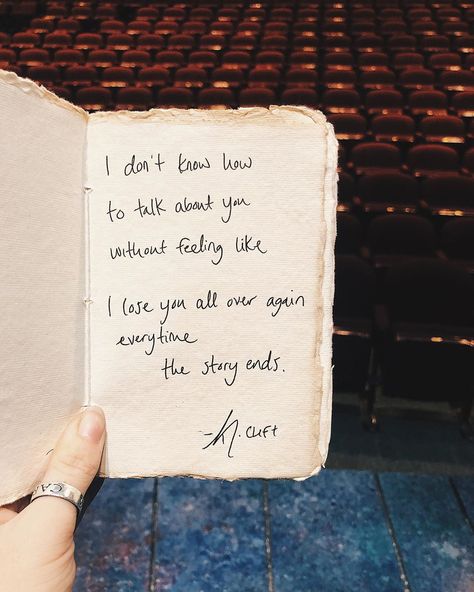 I don't know how
to talk about you
without feeling like
I lose you all over again
everytime
the story ends.
CLIFT